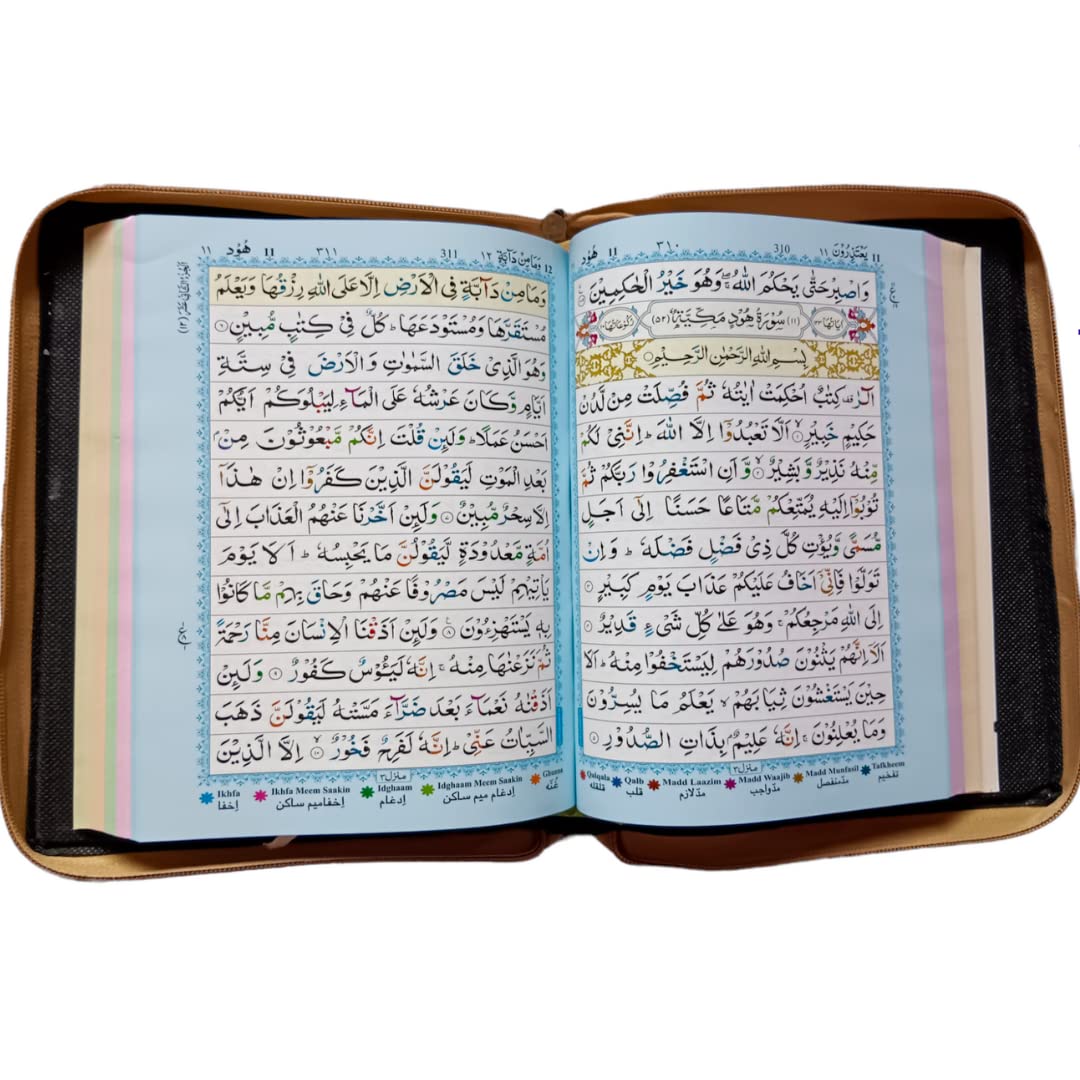 11 يَعْتَذِرُوْنَ ١١ 310 ٣١٠ 11 هُوْد
وَاصْبِرْ حَتّٰى يَحْكُمَ اللّٰهُ ۚۖ وَهُوَ خَيْرُ الْحٰكِمِيْنَ
اٰيَاتُهَا ١٢٣ (١١) سُوْرَةُ هُوْدٍ مَكِّيَّةٌ (٥٢) رُكُوْعَاتُهَا ١٠
بِسْمِ اللّٰهِ الرَّحْمٰنِ الرَّحِيْمِ
الٓرٰ ۟ كِتٰبٌ اُحْكِمَتْ اٰيٰتُهٗ ثُمَّ فُصِّلَتْ مِنْ لَّدُنْ
حَكِيْمٍ خَبِيْرٍ ۙ﴿١﴾ اَلَّا تَعْبُدُوْۤا اِلَّا اللّٰهَ ؕ اِنَّنِيْ لَكُمْ
مِّنْهُ نَذِيْرٌ وَّبَشِيْرٌ ۙ﴿٢﴾ وَّاَنِ اسْتَغْفِرُوْا رَبَّكُمْ ثُمَّ
تُوْبُوْۤا اِلَيْهِ يُمَتِّعْكُمْ مَّتَاعًا حَسَنًا اِلٰۤى اَجَلٍ
مُّسَمًّى وَّيُؤْتِ كُلَّ ذِيْ فَضْلٍ فَضْلَهٗ ؕ وَاِنْ
تَوَلَّوْا فَاِنِّيْۤ اَخَافُ عَلَيْكُمْ عَذَابَ يَوْمٍ كَبِيْرٍ ﴿٣﴾
اِلَى اللّٰهِ مَرْجِعُكُمْ ۚ وَهُوَ عَلٰى كُلِّ شَيْءٍ قَدِيْرٌ ﴿٤﴾
اَلَاۤ اِنَّهُمْ يَثْنُوْنَ صُدُوْرَهُمْ لِيَسْتَخْفُوْا مِنْهُ ؕ اَلَا
حِيْنَ يَسْتَغْشُوْنَ ثِيَابَهُمْ ۙ يَعْلَمُ مَا يُسِرُّوْنَ
وَمَا يُعْلِنُوْنَ ۚ اِنَّهٗ عَلِيْمٌۢ بِذَاتِ الصُّدُوْرِ ﴿٥﴾
منزل ٣
Qalqala Qalb Madd Laazim Madd Waajib Madd Munfasil Tafkheem
قلقله قلب مدّ لازم مدّ واجب مدّ منفصل تفخيم
12 وَمَا مِنْ دَآبَّةٍ ١٢ 311 ٣١١ 11 هُوْد ١١
وَمَا مِنْ دَآبَّةٍ فِي الْاَرْضِ اِلَّا عَلَى اللّٰهِ رِزْقُهَا وَيَعْلَمُ
مُسْتَقَرَّهَا وَمُسْتَوْدَعَهَا ؕ كُلٌّ فِيْ كِتٰبٍ مُّبِيْنٍ ﴿٦﴾
وَهُوَ الَّذِيْ خَلَقَ السَّمٰوٰتِ وَالْاَرْضَ فِيْ سِتَّةِ
اَيَّامٍ وَّكَانَ عَرْشُهٗ عَلَى الْمَآءِ لِيَبْلُوَكُمْ اَيُّكُمْ
اَحْسَنُ عَمَلًا ؕ وَلَئِنْ قُلْتَ اِنَّكُمْ مَّبْعُوْثُوْنَ مِنْۢ
بَعْدِ الْمَوْتِ لَيَقُوْلَنَّ الَّذِيْنَ كَفَرُوْۤا اِنْ هٰذَاۤ
اِلَّا سِحْرٌ مُّبِيْنٌ ﴿٧﴾ وَلَئِنْ اَخَّرْنَا عَنْهُمُ الْعَذَابَ اِلٰۤى
اُمَّةٍ مَّعْدُوْدَةٍ لَّيَقُوْلُنَّ مَا يَحْبِسُهٗ ؕ اَلَا يَوْمَ
يَاْتِيْهِمْ لَيْسَ مَصْرُوْفًا عَنْهُمْ وَحَاقَ بِهِمْ مَّا كَانُوْا
بِهٖ يَسْتَهْزِءُوْنَ ﴿٨﴾ وَلَئِنْ اَذَقْنَا الْاِنْسَانَ مِنَّا رَحْمَةً
ثُمَّ نَزَعْنٰهَا مِنْهُ ۚ اِنَّهٗ لَيَـُٔوْسٌ كَفُوْرٌ ﴿٩﴾ وَلَئِنْ
اَذَقْنٰهُ نَعْمَآءَ بَعْدَ ضَرَّآءَ مَسَّتْهُ لَيَقُوْلَنَّ ذَهَبَ
السَّيِّاٰتُ عَنِّيْ ؕ اِنَّهٗ لَفَرِحٌ فَخُوْرٌ ﴿١٠﴾ اِلَّا الَّذِيْنَ
منزل ٣
Ikhfa Ikhfa Meem Saakin Idghaam Idghaam Meem Saakin Ghunna
إخفا إخفا ميم ساكن إدغام إدغام ميم ساكن غُنّه